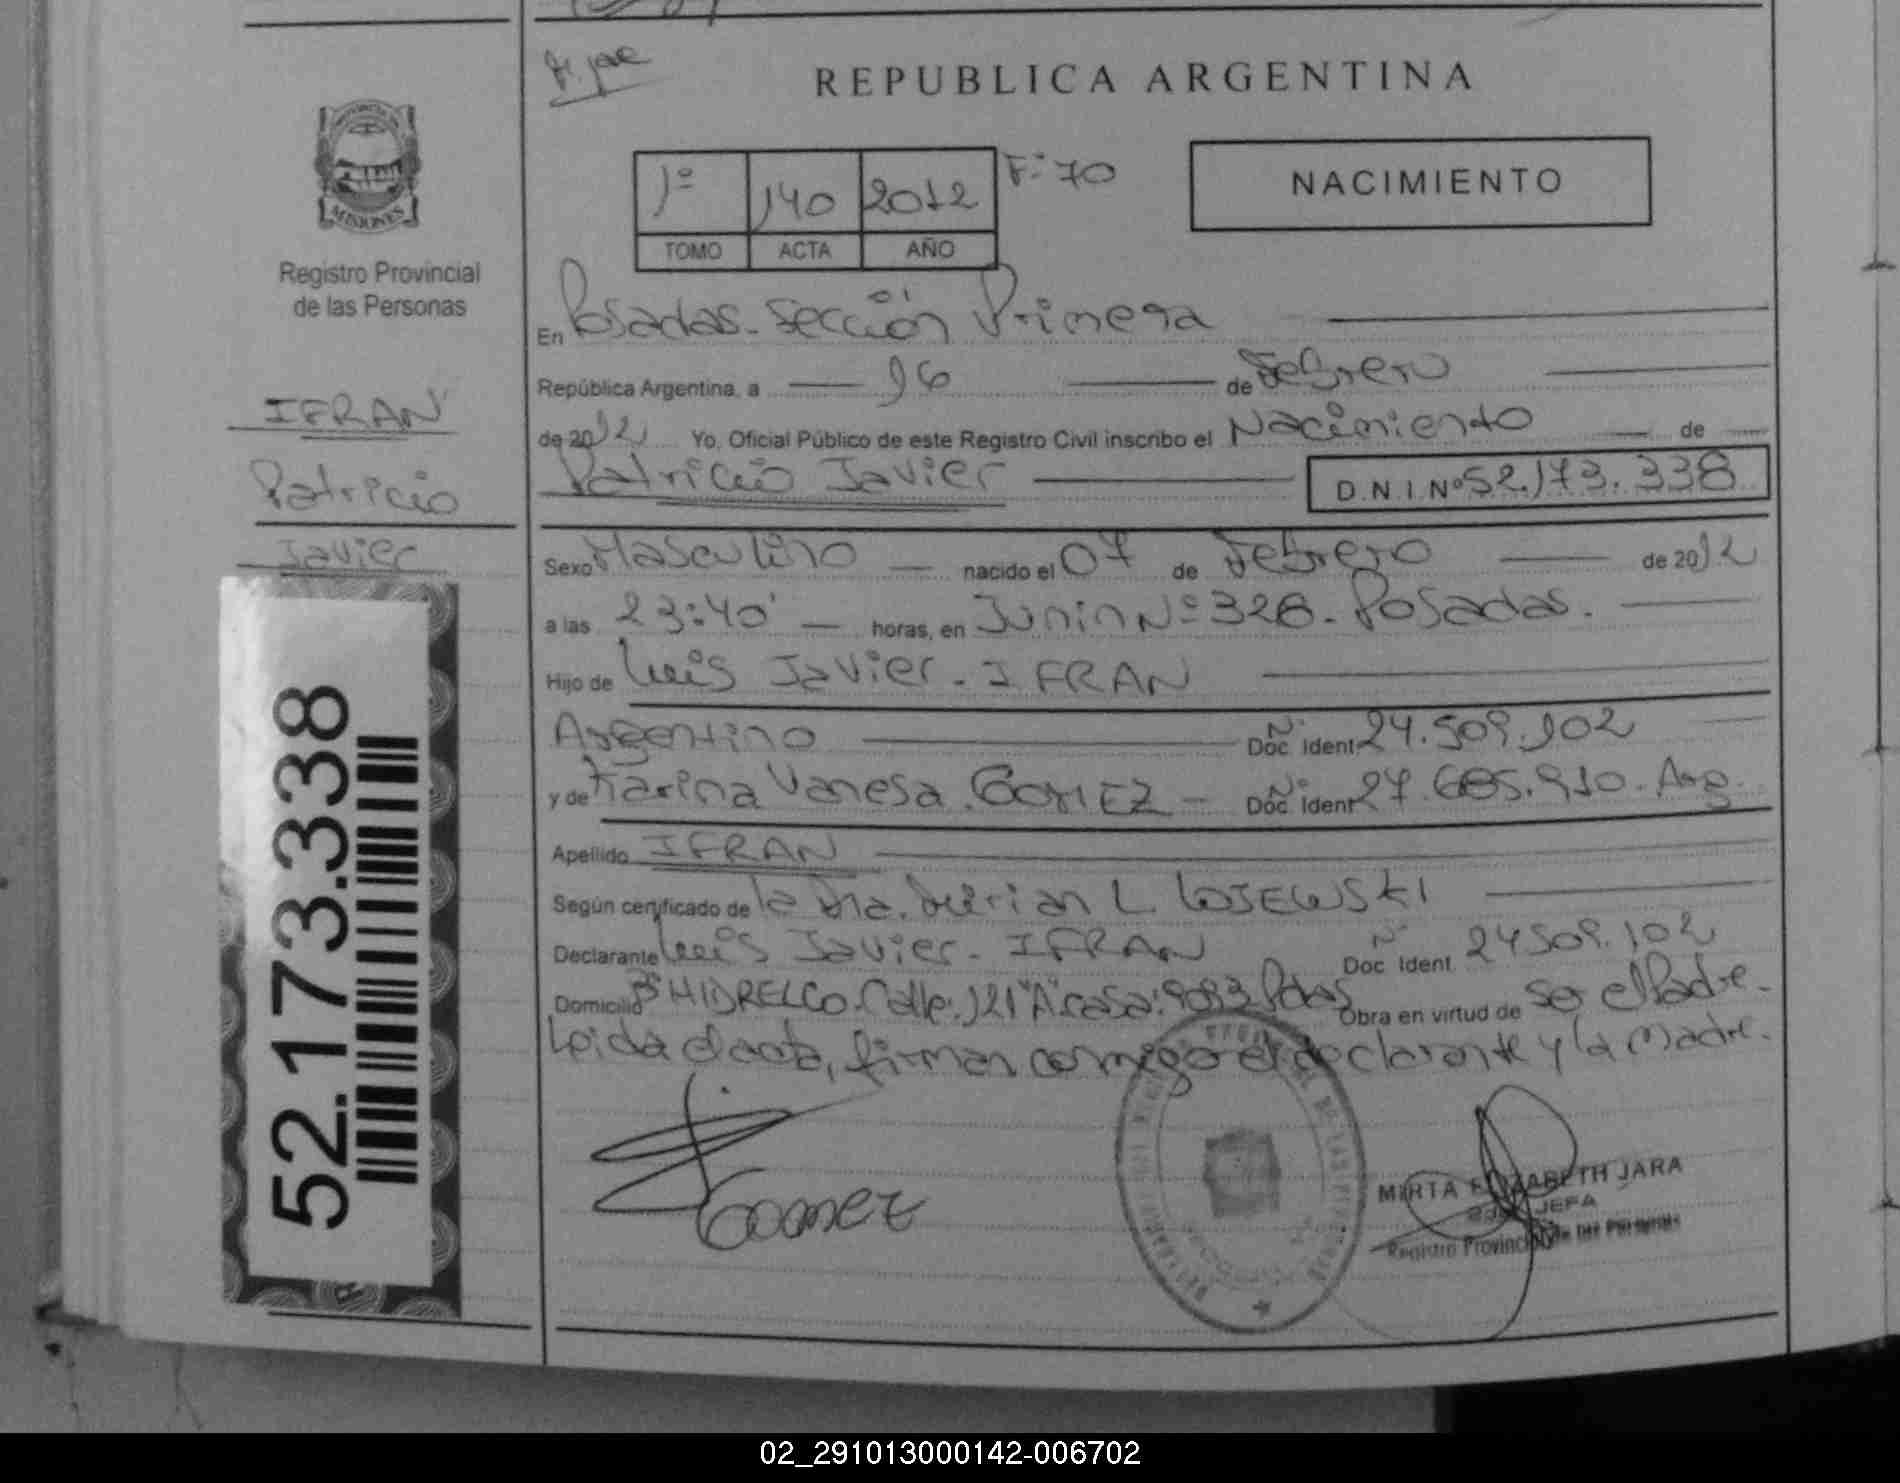 REPUBLICA ARGENTINA
1º 140 2012 Fº 70
TOMO ACTA AÑO
NACIMIENTO
PROVINCIA DE
MISIONES
Registro Provincial
de las Personas
IFRAN
Patricio
Javier
52.173.338
En Posadas. Sección Primera
República Argentina, a 16 de Febrero
de 2012 Yo, Oficial Público de este Registro Civil inscribo el Nacimiento de
Patricio Javier D.N.I.Nº 52.173.338
Sexo Masculino nacido el 07 de Febrero de 2012
a las 23:40' horas, en Junin Nº 326. Posadas.
Hijo de Luis Javier. IFRAN
Argentino Nº Doc. Ident. 24.509.102
y de Karina Vanesa. GOMEZ Nº Doc. Ident. 27.685.910. Arg.
Apellido IFRAN
Según certificado de la Dra. L. LOSEWSKI
Declarante Luis Javier. IFRAN Nº Doc. Ident. 24509.102
Domicilio Bº HIDRELCO. Calle: 121 "A" casa: 9093 Pdas Obra en virtud de ser el Padre.
Leida el acta, firman conmigo el declarante y la Madre.
Gomez
MIRTA ELIZABETH JARA
JEFA
Registro Provincial de las Personas
02_291013000142-006702